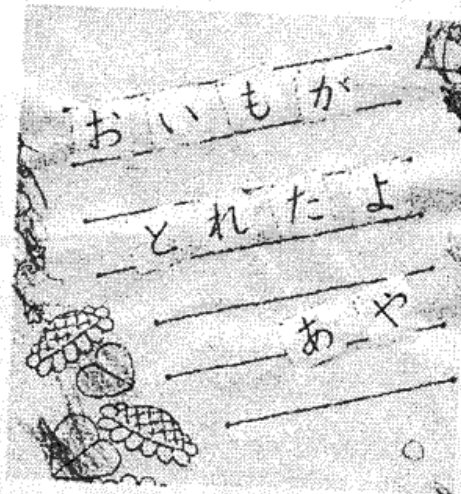 おいもが
とれたよ
あや